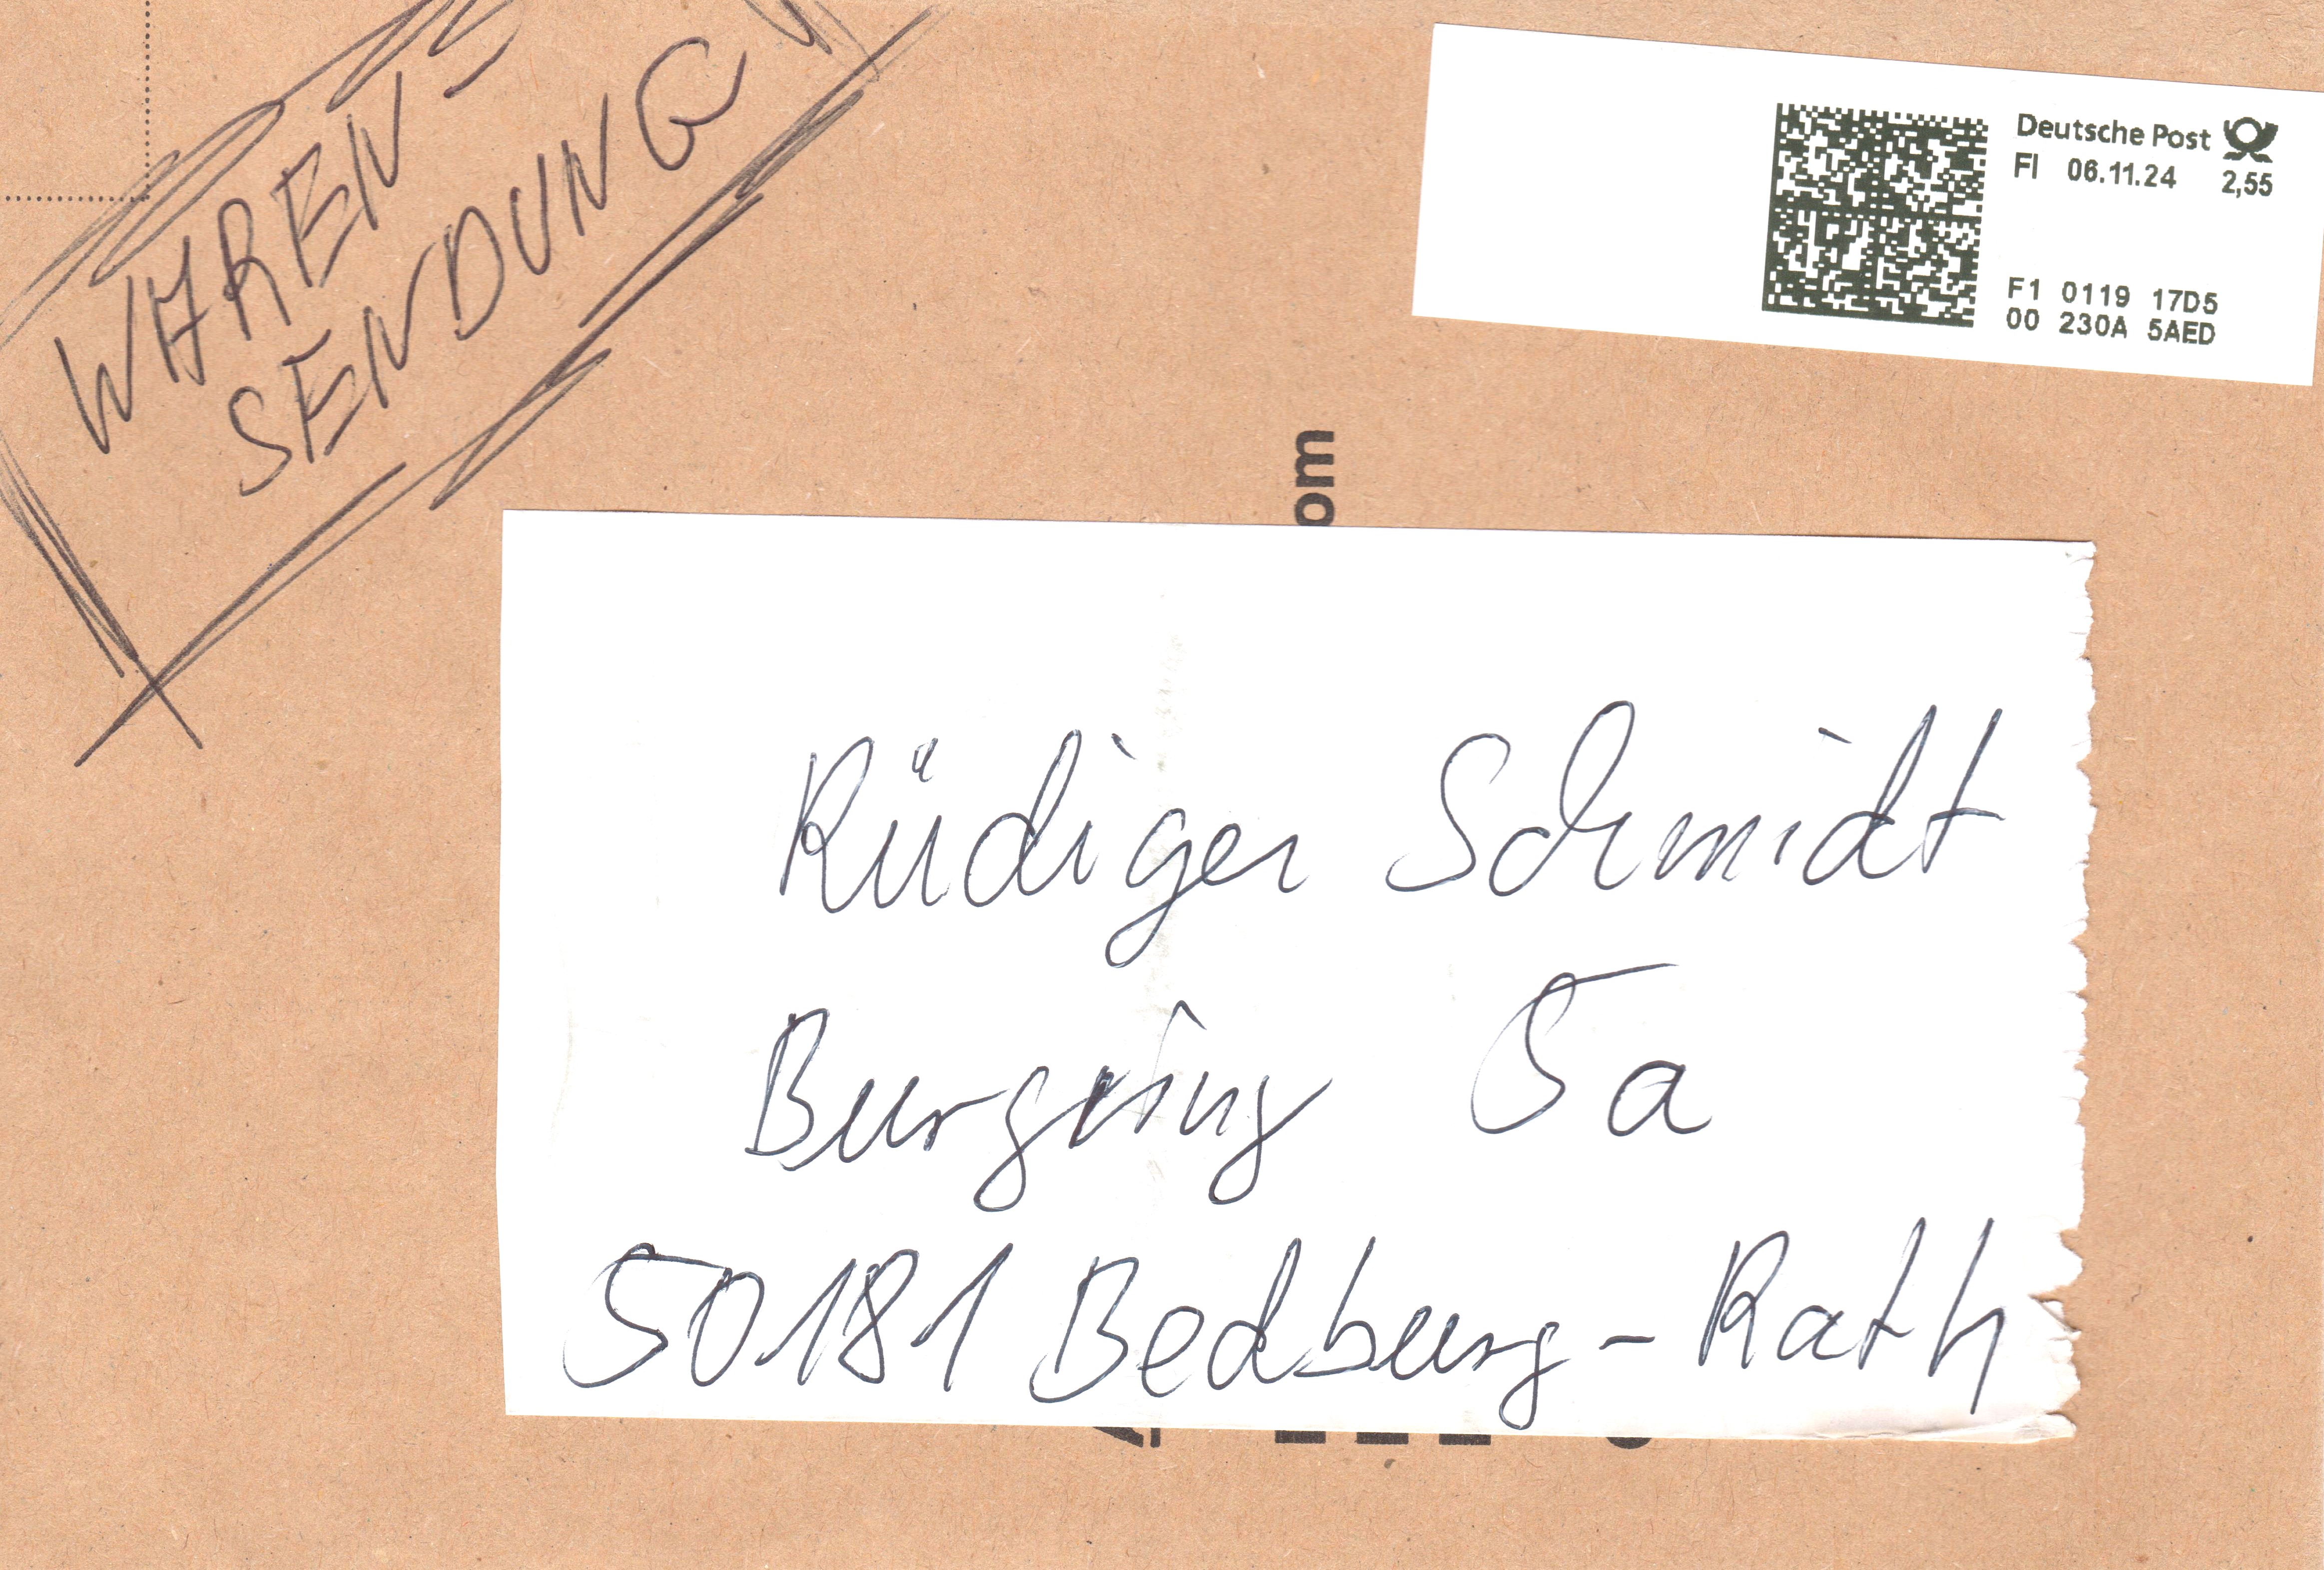 WAREN
SENDUNG
Deutsche Post
FI 06.11.24 2,55
F1 0119 17D5
00 230A 5AED
om
Rüdiger Schmidt
Burgring 5a
50181 Bedburg-Rath